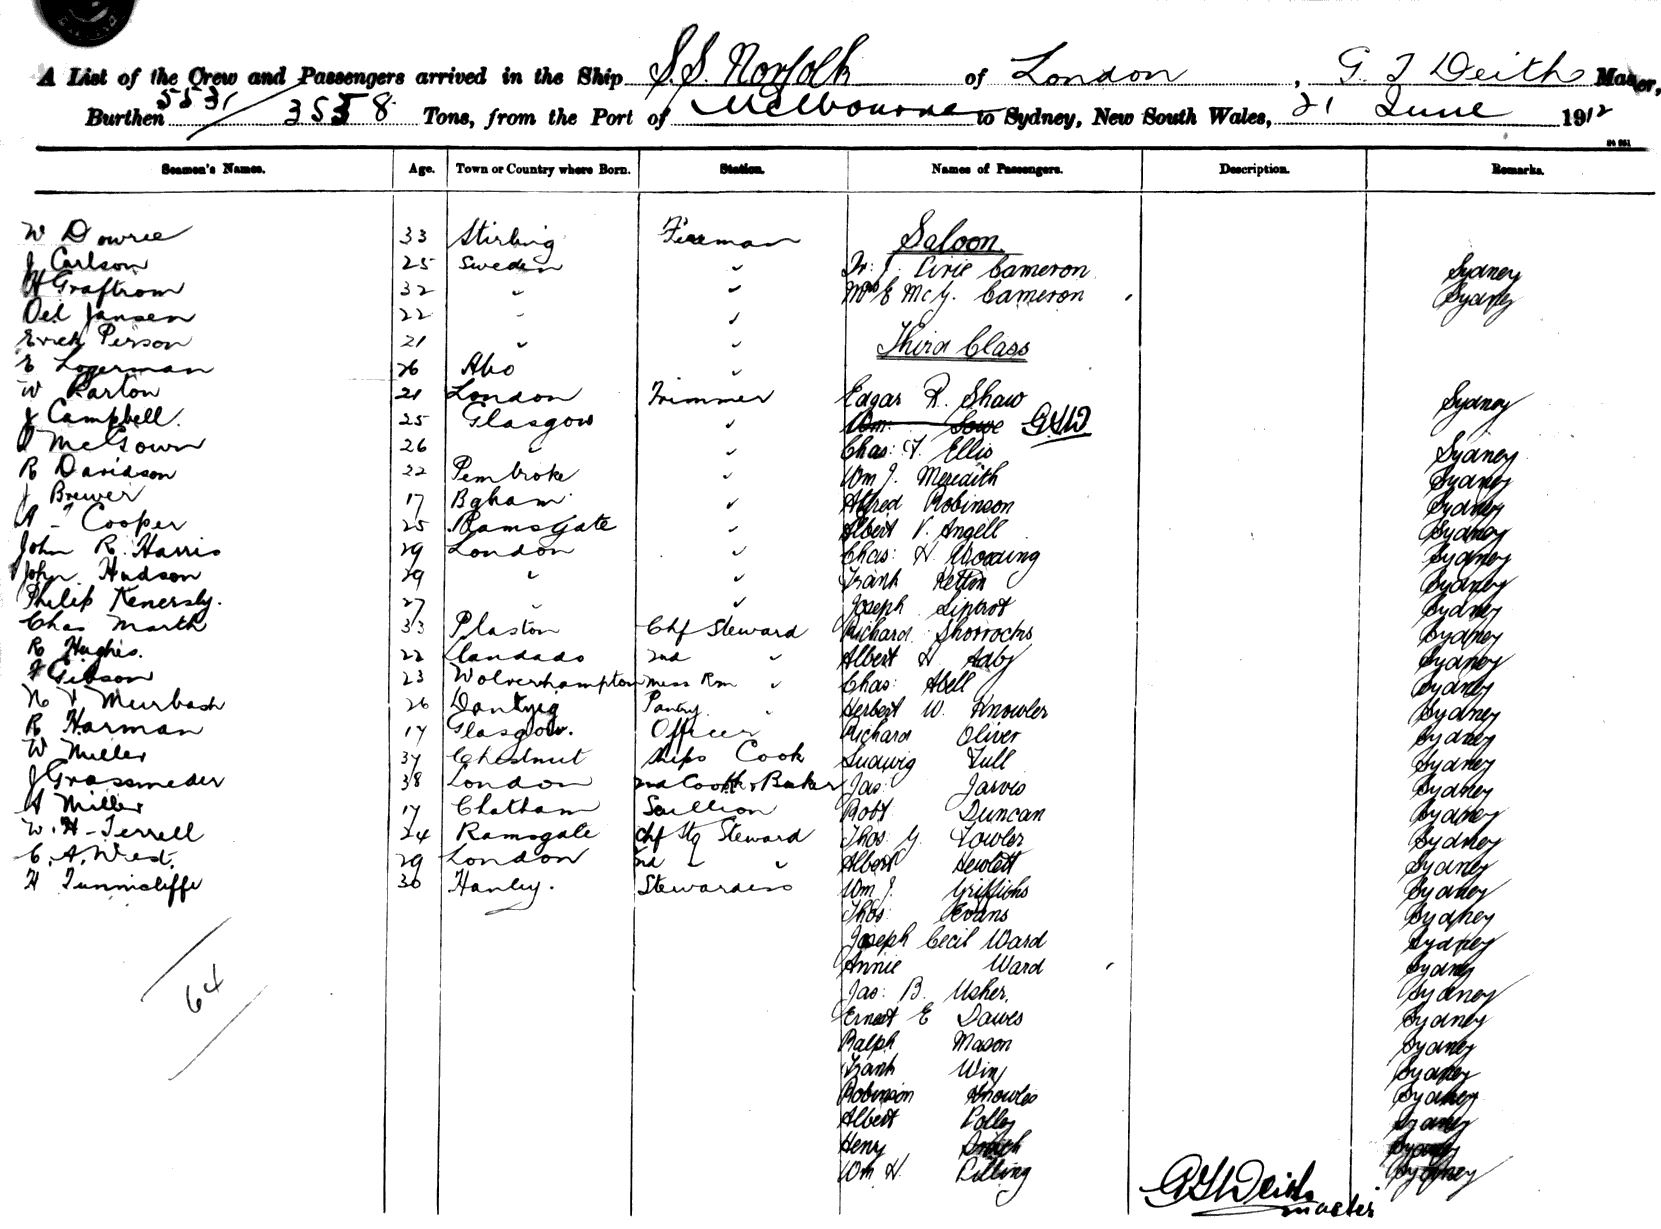 A List of the Crew and Passengers arrived in the Ship S.S. Norfolk of London, G. T Deith Master,
Burthen 5531/3558 Tons, from the Port of Melbourne to Sydney, New South Wales, 21 June 1912
Seamen's Names. Age. Town or Country where Born. Station. Names of Passengers. Description. Remarks.
W Dowree 33 Stirling Fireman Saloon
J Carlson 25 Sweden " Dr. J. Pirie Cameron Sydney
H Graftrom 32 " " Mrs E McG. Cameron Sydney
Oel Jansen 22 " "
Erick Person 21 " " Third Class
E Logerman 26 Abo "
W Barton 21 London Trimmer Edgar R. Shaw Sydney
J Campbell. 25 Glasgow " Wm. Lowe GTD
McGown 26 " " Chas: T. Ellis Sydney
R Davidson 22 Pembroke " Wm J. Meredith Sydney
J Brewer 17 Bgham " Alfred Robinson Sydney
A - Cooper 25 Ramsgate " Albert V. Angell Sydney
John R. Harris 29 London " Chas: H. Sydney
John Hudson 29 " " Frank Sydney
Philip Kenersly. 27 " " Joseph Liptrot Sydney
Chas Marth 33 Plaston Chf Steward Richard Shorrocks Sydney
R Hughes. 22 Llandado 2nd " Albert H. Adby Sydney
F Gibson 23 Wolverhampton mess Rm " Chas: Abell Sydney
N V Meurbach 26 Dantzig Pantry " Herbert W. Knowler Sydney
R Harman 17 Glasgow. Officer Richard Oliver Sydney
W Miller 37 Chestnut Ships Cook Ludwig Tull Sydney
J Grassmeder 38 London 2nd Cook & Baker Jas: Jarvis Sydney
A Miller 17 Chatham Scullion Robt Duncan Sydney
W. H - Terrell 24 Ramsgate Chf Stg Steward Thos: G. Fowler Sydney
C. A. West. 29 London 2nd " " Albert Hewlett Sydney
H Tunnicliffe 30 Hanley. Stewardess Wm J. Griffiths Sydney
Thos: Evans Sydney
Joseph Cecil Ward Sydney
Annie Ward Sydney
64 Jas: B. Usher. Sydney
Ernest E Dawes Sydney
Ralph Mason Sydney
Frank Win Sydney
Robinson Knowles Sydney
Albert Polley Sydney
Henry Smith Sydney
Wm H. Pilling Sydney
G T Deith
master